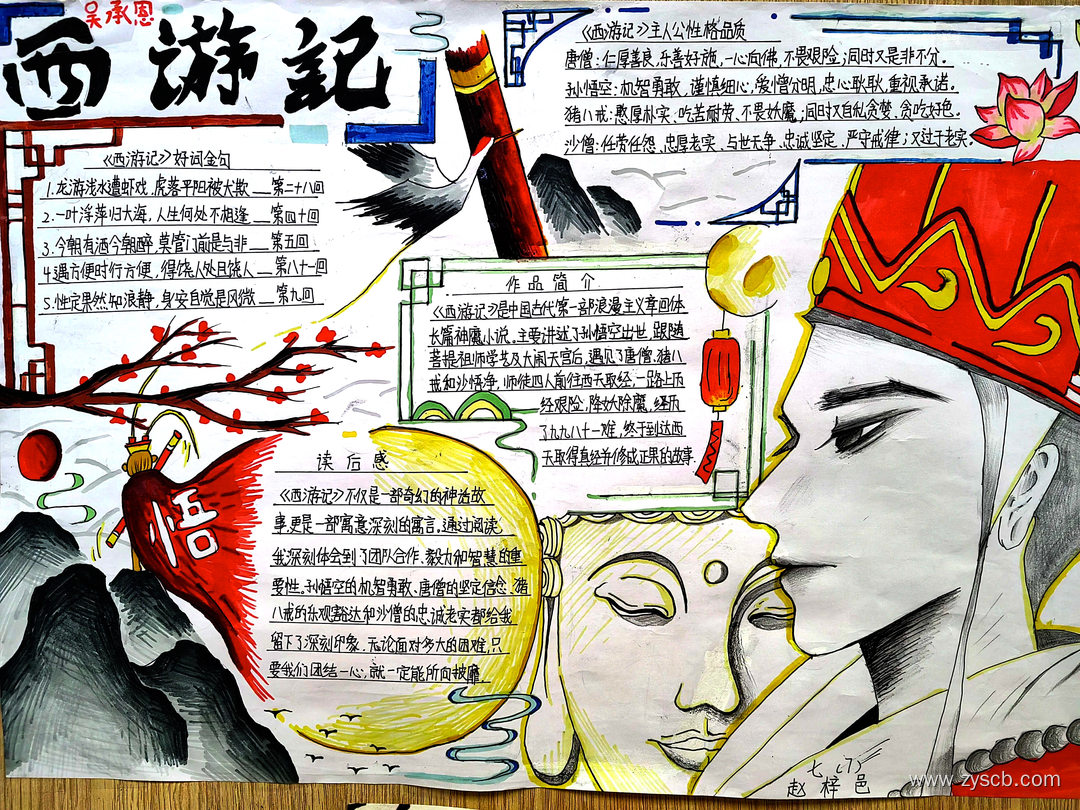 吴承恩
西游記
《西游记》主人公性格品质
唐僧：仁厚善良，乐善好施，一心向佛，不畏艰险；同时又是非不分。
孙悟空：机智勇敢、谨慎细心，爱憎分明，忠心耿耿，重视承诺。
猪八戒：憨厚朴实、吃苦耐劳、不畏妖魔；同时又自私贪婪，贪吃好色。
沙僧：任劳任怨、忠厚老实、与世无争、忠诚坚定，严守戒律；又过于老实。
《西游记》好词金句
1.龙游浅水遭虾戏，虎落平阳被犬欺__第二十八回
2.一叶浮萍归大海，人生何处不相逢__第四十回
3.今朝有酒今朝醉，莫管门前是与非__第五回
4.遇方便时行方便，得饶人处且饶人__第八十一回
5.性定果然知浪静，身安自觉是风微__第九回
作品简介
《西游记》是中国古代第一部浪漫主义章回体
长篇神魔小说。主要讲述了孙悟空出世，跟随
菩提祖师学艺及大闹天宫后，遇见了唐僧、猪八
戒和沙悟净，师徒四人前往西天取经，一路上历
经艰险，降妖除魔，经历
了九九八十一难，终于到达西
天取得真经并修成正果的故事。
读后感
《西游记》不仅是一部奇幻的神话故
事，更是一部寓意深刻的寓言。通过阅读，
我深刻体会到了团队合作、毅力和智慧的重
要性。孙悟空的机智勇敢、唐僧的坚定信念、猪
八戒的乐观豁达和沙僧的忠诚老实都给我
留下了深刻印象。无论面对多大的困难，只
要我们团结一心，就一定能所向披靡
悟
七（7）
赵梓邑
www.zyscb.com